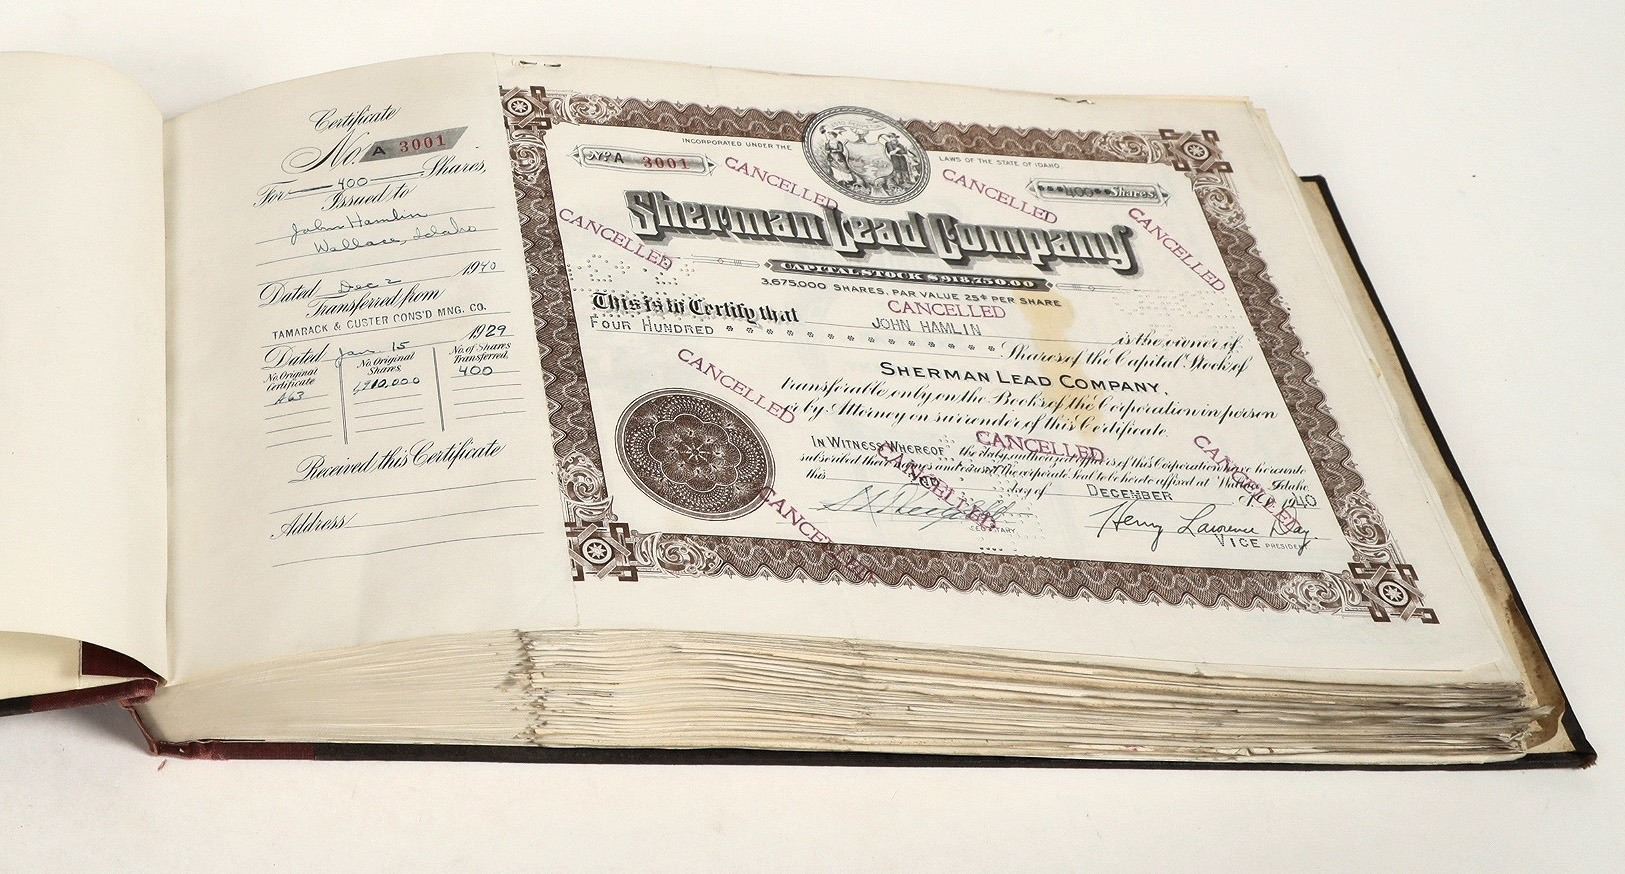 Certificate
No. A 3001
For 400 Shares,
Issued to
John Hamlin
Wallace, Idaho
Dated Dec 2 1940
Transferred from
TAMARACK & CUSTER CONS'D MNG. CO.
Dated Jan 15 1929
No. Original Certificate
No. Original Shares
No. of Shares Transferred.
A63
400
Received this Certificate
Address
INCORPORATED UNDER THE LAWS OF THE STATE OF IDAHO
No. A 3001
400 Shares
CANCELLED
CANCELLED
CANCELLED
CANCELLED
Sherman Lead Company
CAPITAL STOCK $918,750.00
3,675,000 SHARES, PAR VALUE 25¢ PER SHARE
CANCELLED
This is to Certify that JOHN HAMLIN is the owner of
FOUR HUNDRED Shares of the Capital Stock of
SHERMAN LEAD COMPANY,
CANCELLED
transferable only on the Books of the Corporation in person
or by Attorney on surrender of this Certificate.
CANCELLED
CANCELLED
CANCELLED
CANCELLED
IN WITNESS WHEREOF the duly authorized officers of this Corporation have hereunto
subscribed their names and caused the corporate Seal to be hereto affixed at Wallace, Idaho
this day of DECEMBER A.D. 1940
SECRETARY
Henry Lawrence Day.
VICE PRESIDENT